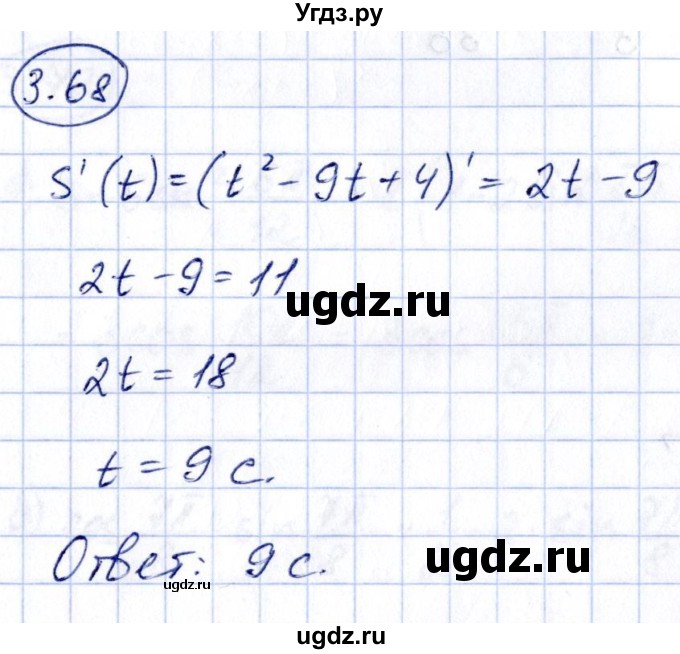 Угдз.ру
3.68
S'(t)=(t²-9t+4)'=2t-9
2t-9=11
ugdz.ru
2t=18
t=9 с.
Ответ: 9 с.
ugdz.ru
ugdz.ru
ugdz.ru